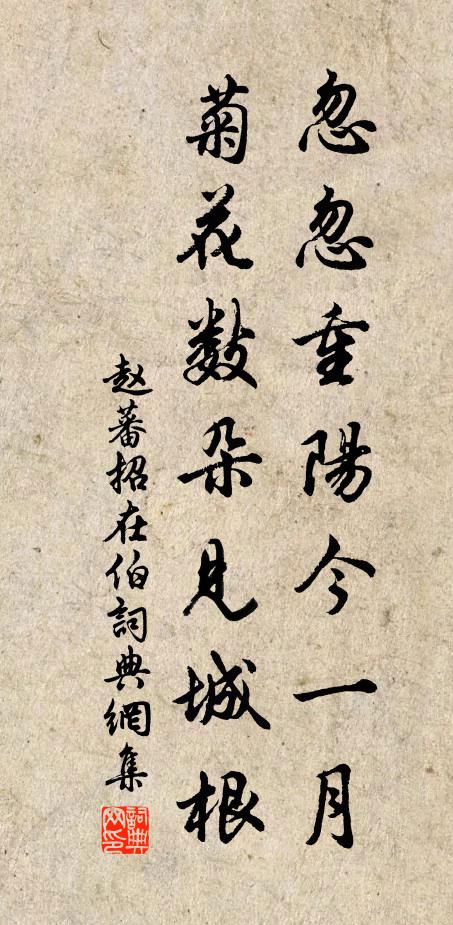 忽忽重陽今一月
菊花數朶見城根
赵蕃招在伯詞典網集
詞典網印